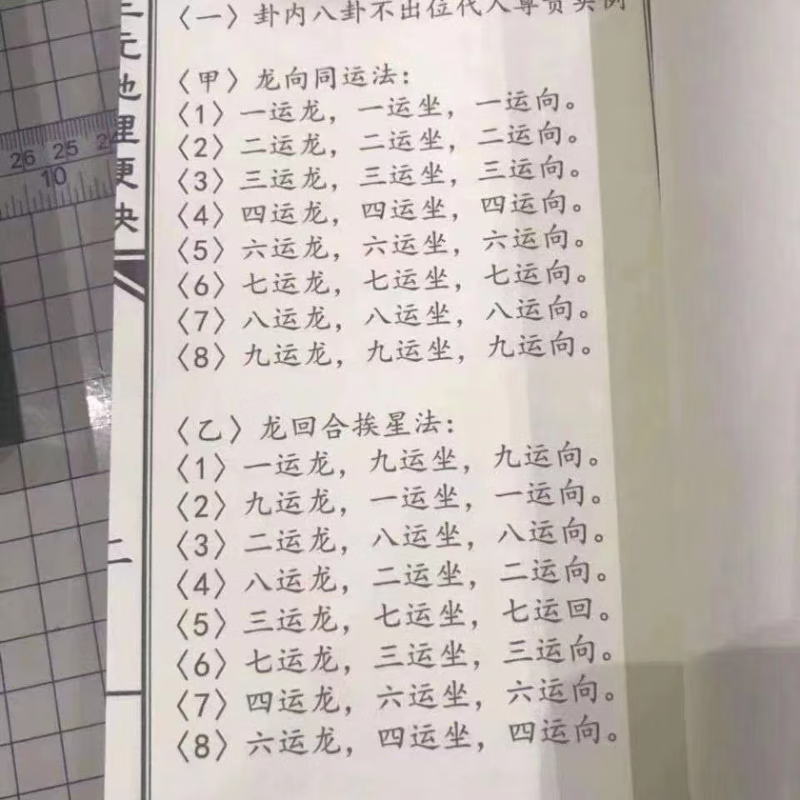 〈一〉卦内八卦不出位代人尊贵实例
〈甲〉龙向同运法：
〈1〉一运龙，一运坐，一运向。
〈2〉二运龙，二运坐，二运向。
〈3〉三运龙，三运坐，三运向。
〈4〉四运龙，四运坐，四运向。
〈5〉六运龙，六运坐，六运向。
〈6〉七运龙，七运坐，七运向。
〈7〉八运龙，八运坐，八运向。
〈8〉九运龙，九运坐，九运向。
〈乙〉龙回合挨星法：
〈1〉一运龙，九运坐，九运向。
〈2〉九运龙，一运坐，一运向。
〈3〉二运龙，八运坐，八运向。
〈4〉八运龙，二运坐，二运向。
〈5〉三运龙，七运坐，七运回。
〈6〉七运龙，三运坐，三运向。
〈7〉四运龙，六运坐，六运向。
〈8〉六运龙，四运坐，四运向。
元地理便决
二
26 25
10